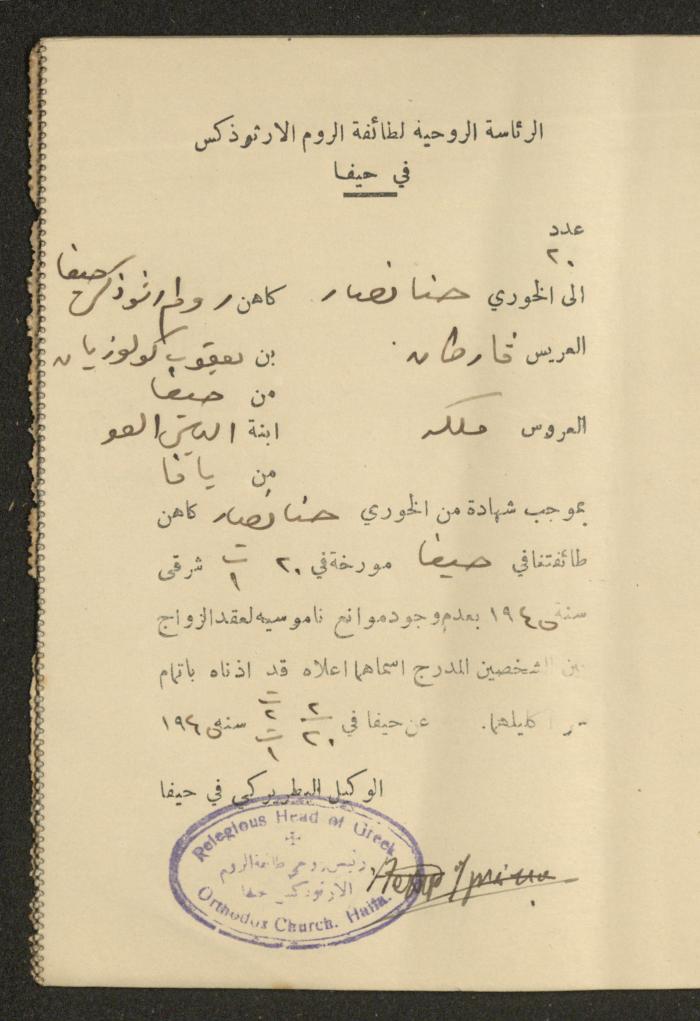 الرئاسة الروحية لطائفة الروم الارثوذكس
في حيفا
عدد
٢٠
الى الخوري حنا نصار كاهن روم ارثوذكس حيفا
العريس فارطان بن يعقوب كولوزيان
من حيفا
العروس ملكه ابنة
من يافا
بموجب شهادة من الخوري حنا نصار كاهن
طائفتنا في حيفا مورخة في ٢٠ ت ١ شرقي
سنة ١٩٤٠ بعدم وجود موانع ناموسيه لعقد الزواج
بين الشخصين المدرج اسماهما اعلاه قد اذناه باتمام
سر اكليلهما. عن حيفا في ٢ ت ٢ ٢٠ ت ١ سنة ١٩٤٠
الوكيل البطريركي في حيفا
Relegious Head of Greek
رئيس روحي طائفة الروم
الارثوذكس حيفا
Orthodox Church. Haifa.